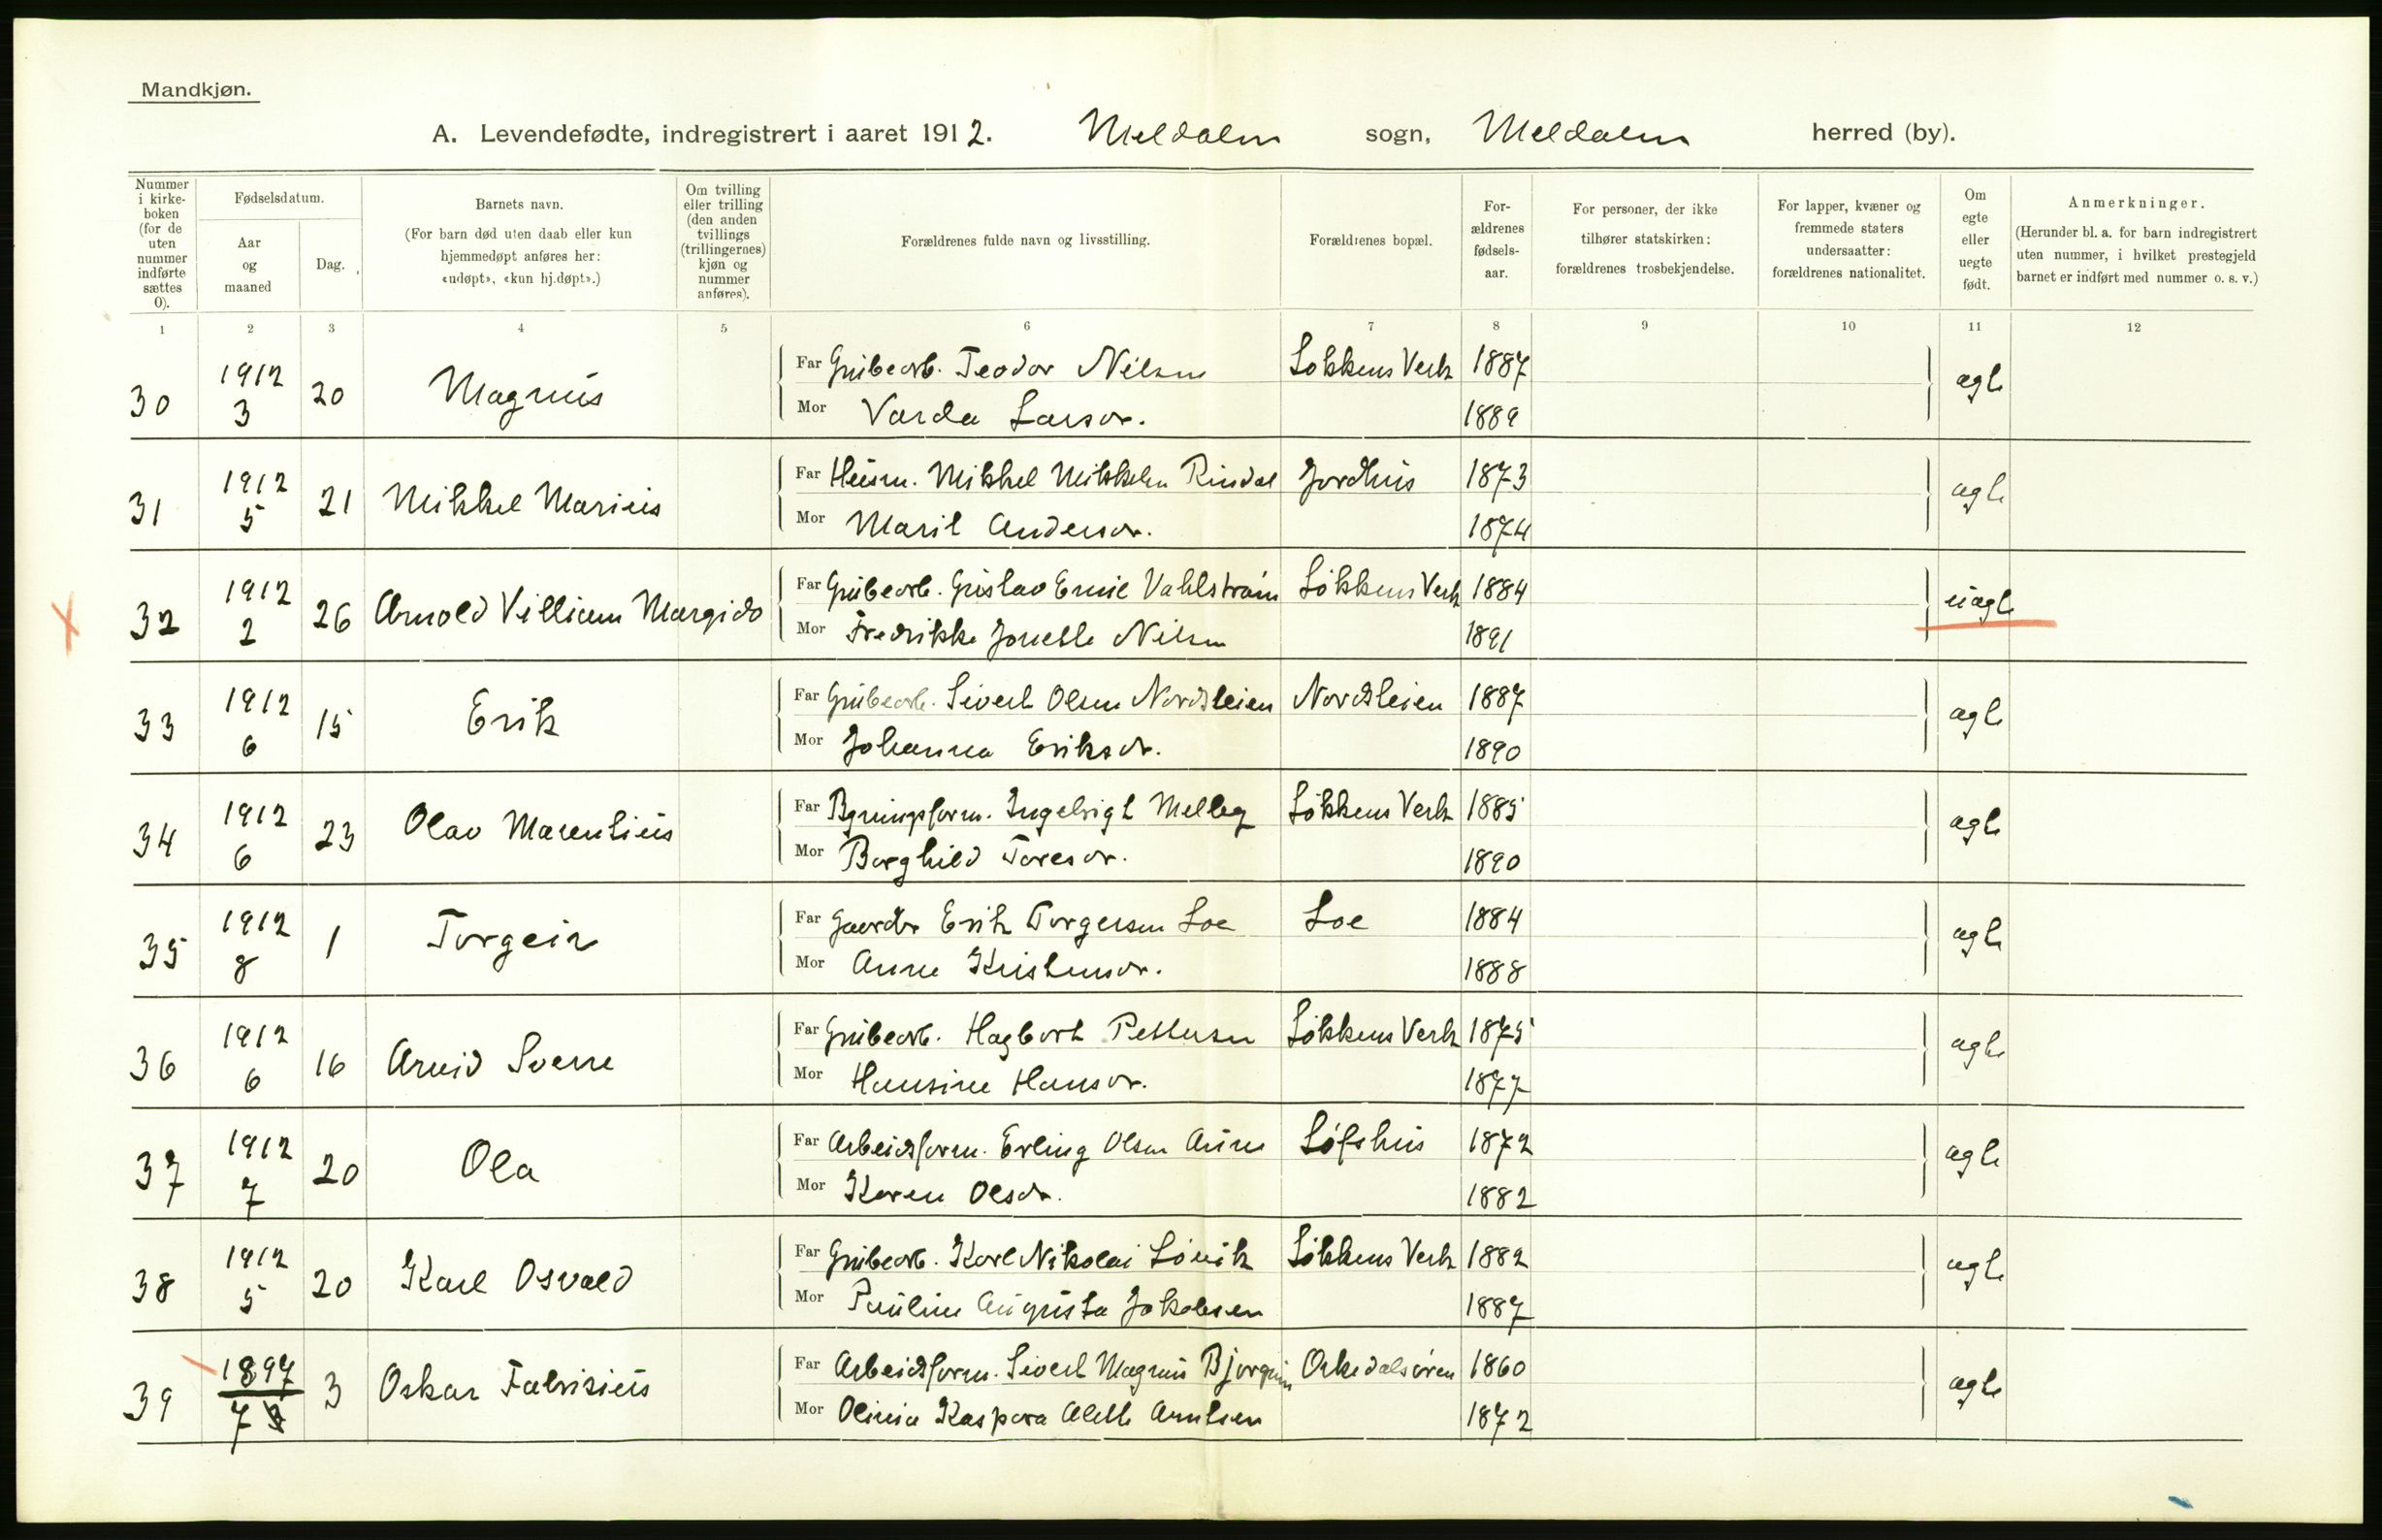 Mandkjøn.
A. Levendefødte, indregistrert i aaret 1912. Meldalen sogn, Meldalen herred (by).
Nummer i kirke-boken (for de uten nummer indførte sættes 0).
Fødselsdatum.
Aar og maaned
Dag.
Barnets navn.
(For barn død uten daab eller kun hjemmedøpt anføres her: «udøpt», «kun hj.døpt».)
Om tvilling eller trilling (den anden tvillings (trillingernes) kjøn og nummer anføres).
Forældrenes fulde navn og livsstilling.
Forældrenes bopæl.
For-ældrenes fødsels-aar.
For personer, der ikke tilhører statskirken: forældrenes trosbekjendelse.
For lapper, kvæner og fremmede staters undersaatter: forældrenes nationalitet.
Om egte eller uegte født.
Anmerkninger.
(Herunder bl. a. for barn indregistrert uten nummer, i hvilket prestegjeld barnet er indført med nummer o. s. v.)
1 2 3 4 5 6 7 8 9 10 11 12
30 1912 3 20 Magnus Far Grubearb. Teodor Nilsen Løkkens Verk 1887 ægte
Mor Varda Larsdr. 1889
31 1912 5 21 Mikkel Marius Far Husm. Mikkel Mikkelsen Rindal Jordhus 1873 ægte
Mor Marit Andersdr. 1874
32 1912 2 26 Arnold Villiam Margido Far Grubearb. Gustav Emil Vahlstrøm Løkkens Verk 1884 uægte
Mor Fredrikke Jonette Nilsen 1891
33 1912 6 15 Erik Far Grubearb. Sivert Olsen Nordsleien Nordsleien 1887 ægte
Mor Johanna Eriksdr. 1890
34 1912 6 23 Olav Marentius Far Bygningsform. Ingebrigt Melleg Løkkens Verk 1885 ægte
Mor Borghild Toresdr. 1890
35 1912 8 1 Torgeir Far Gaardbr Erik Torgersen Loe Loe 1884 ægte
Mor Anne Kristensdr. 1888
36 1912 6 16 Arvid Sverre Far Grubearb. Hagbart Pettersen Løkkens Verk 1875 ægte
Mor Hansine Hansdr. 1877
37 1912 7 20 Ola Far Arbeidsform. Erling Olsen Aune Løfshus 1872 ægte
Mor Karen Olsdr. 1882
38 1912 5 20 Karl Osvald Far Grubearb. Karl Nikolai Løvik Løkkens Verk 1882 ægte
Mor Pauline Augusta Jakobsen 1887
39 1897 7 3 Oskar Fabrisius Far Arbeidsform. Sivert Magnus Bjørgum Orkedalsøren 1860 ægte
Mor Olivia Kaspara Alette Arntsen 1872